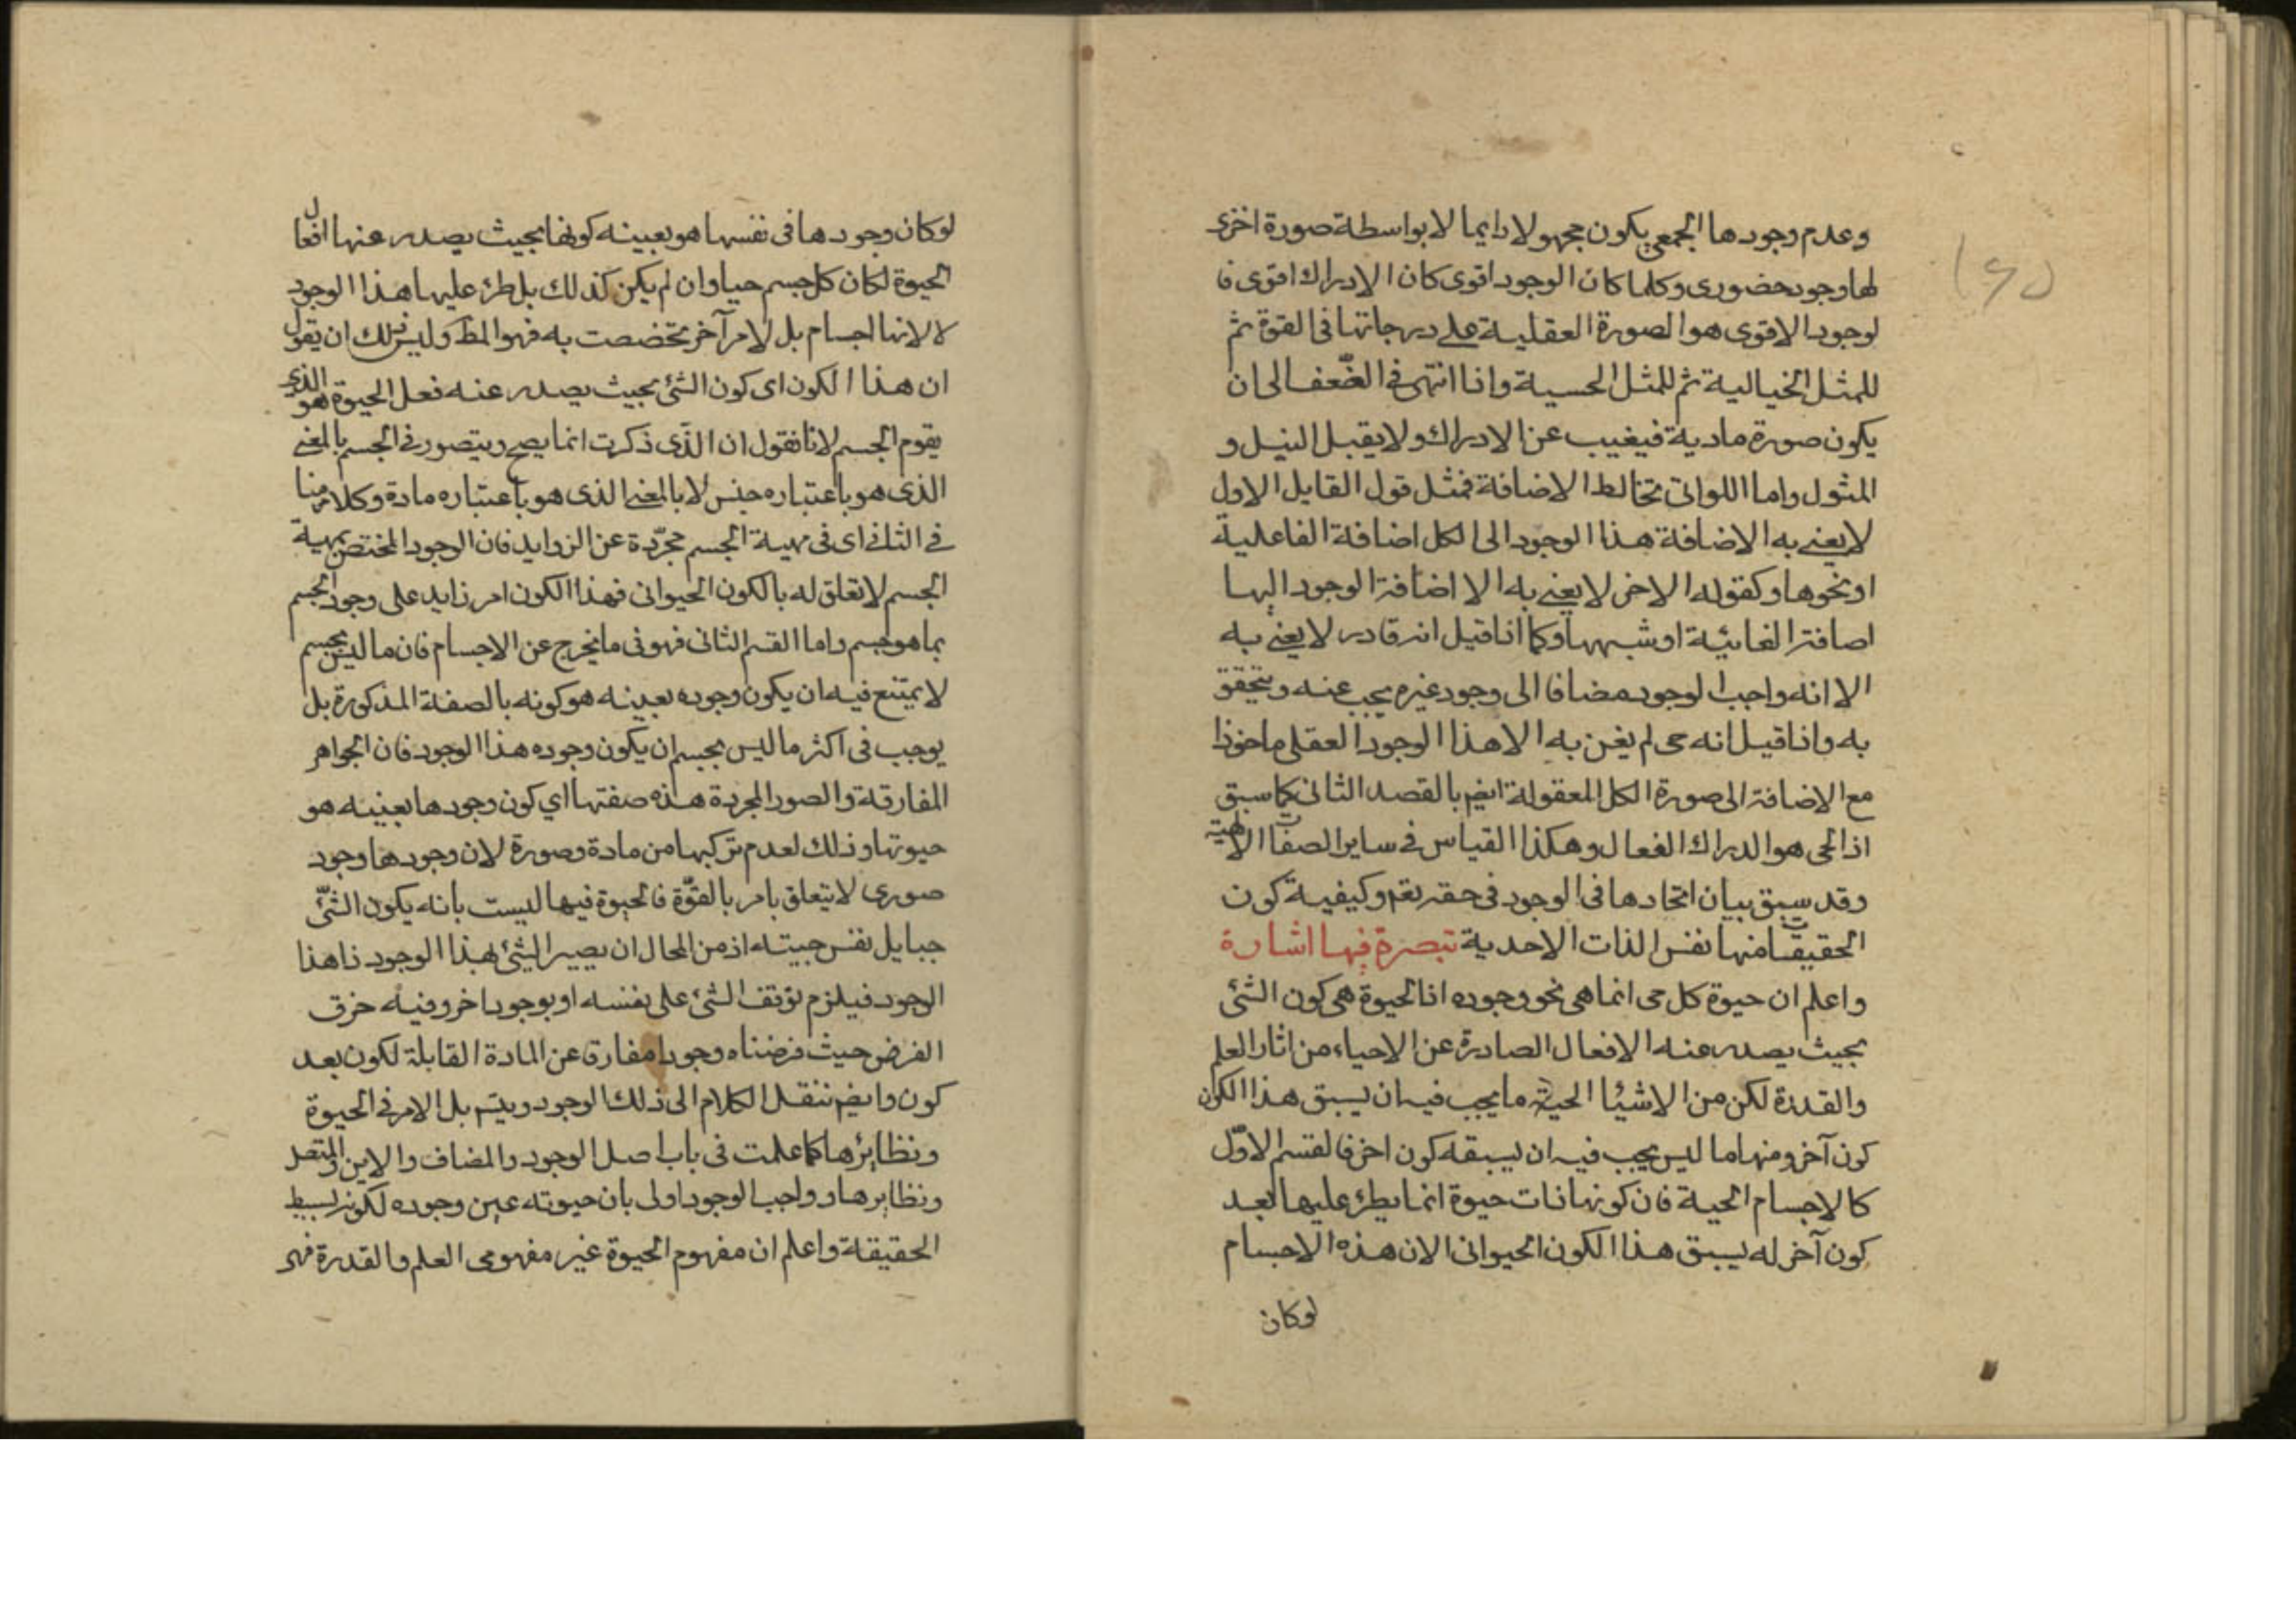 وعدم وجودها الجمعي يكون مجهولا دايما لا بواسطة صورة اخرى
لها وجود حضورى وكلما كان الوجود اقوى كان الادراك اقوى فا
لوجود الاقوى هو الصورة العقلية على درجاتها فى القوة ثم
للمثل الخيالية ثم للمثل الحسية واذا انتهى فى الضّعف الى ان
يكون صورة مادية فيغيب عن الادراك ولا يقبل النيل و
المثول واما اللواتى تخالط الاضافة فمثل قول القايل الاول
لا يعنى به الا ضافة هذا الوجود الى الكل اضافة الفاعلية
او نحوها وكقوله الاخر لا يعنى به الا اضافة الوجود اليها
اضافة الغائيّة او شبهها وكما اذا قيل انه قادر لا يعنى به
الا انه واجب الوجود مضافا الى وجود غيره يجب عنه ويتحقق
به واذا قيل انه حى لم يعن به الا هذا الوجود العقلى ماخوذا
مع الاضافة الى صورة الكل المعقولة ايضم بالقصد الثانى كما سبق
اذ الحى هو الدراك الفعال وهكذا القياس فى ساير الصفات الالهية
وقد سبق بيان اتحادها فى الوجود فى حقه تعم وكيفية كون
الحقيقيات منها نفس الذات الاحدية تبصرة فيها اشارة
واعلم ان حيوة كل حى انما هى نحو وجوده اذ الحيوة هى كون الشئ
بحيث يصدر عنه الافعال الصادرة عن الاحياء من اثار العلم
والقدرة لكن من الاشيا الحية ما يجب فيه ان يسبق هذا الكون
كون آخر ومنها ما ليس يجب فيه ان يسبقه كون اخر فالقسم الاوّل
كالاجسام الحية فان كونها ذات حيوة انما يطرء عليها بعد
كون آخر له يسبق هذا الكون الحيوانى الان هذه الاجسام
لوكان
لوكان وجودها فى نفسها هو بعينه كونها بحيث يصدر عنها افعال
الحيوة لكان كل جسم حيا وان لم يكن كذلك بل طرء عليها هذا الوجود
لا لانها اجسام بل لامر آخر تخصصت به فهو المط وليس لك ان تقول
ان هذا الكون اى كون الشئ بحيث يصدر عنه فعل الحيوة هو الذى
يقوم الجسم لانا نقول ان الذّى ذكرت انما يصح ويتصور فى الجسم بالمعنى
الذى هو باعتباره جنس لا بالمعنى الذى هو باعتباره مادة وكلامنا
فى الثانى اى فى مهية الجسم مجرّدة عن الزوايد فان الوجود المختص بمهية
الجسم لا تعلق له بالكون الحيوانى فهذا الكون امر زايد على وجود الجسم
بما هو جسم واما القسم الثانى فهو فى ما يخرج عن الاجسام فان ما ليس بجسم
لا يمتنع فيه ان يكون وجوده بعينه هو كونه بالصفة المذكورة بل
يوجب فى اكثر ما ليس بجسم ان يكون وجوده هذا الوجود فان الجواهر
المفارقة والصور المجردة هذه صفتها اي كون وجودها بعينه هو
حيوتها وذلك لعدم تركبها من مادة وصورة لان وجودها وجود
صورى لا يتعلق بامر بالقوّة فالحيوة فيها ليست بانه يكون الشئّ
حيا بل نفس حييته اذ من المحال ان يصير الشئ بهذا الوجود ذا هذا
الوجود فيلزم توقف الشئ على نفسه او بوجود اخر وفيه خرق
الفرض حيث فرضناه وجودا مفارقا عن المادة القابلة لكون بعد
كون وايضم ننقل الكلام الى ذلك الوجود ويتم بل الامر فى الحيوة
ونظايرها كما علمت فى باب اصل الوجود والمضاف والاين والمتصل
ونظايرها وواجب الوجود اولى بان حيوته عين وجوده لكونه بسيط
الحقيقة واعلم ان مفهوم الحيوة غير مفهومى العلم والقدرة فهى